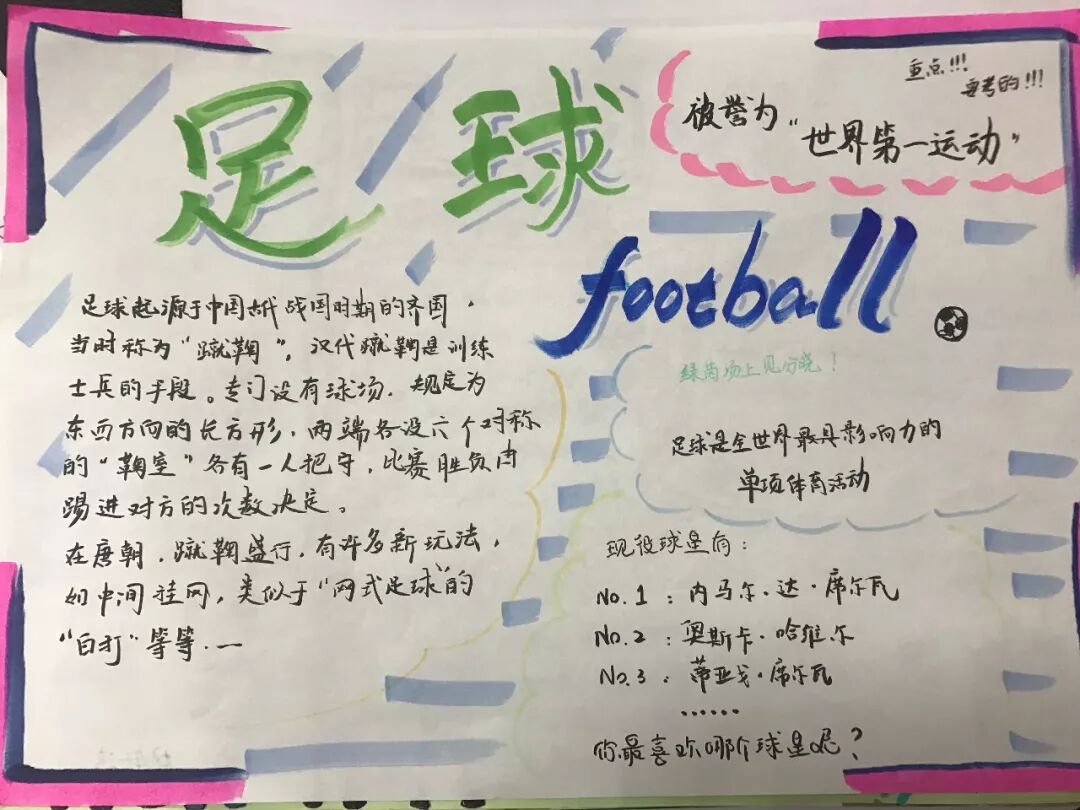 足球
重点!!!
要考的!!!
被誉为
“世界第一运动”
football
足球起源于中国古代战国时期的齐国，
当时称为“蹴鞠”。汉代蹴鞠是训练
士兵的手段。专门设有球场，规定为
东西方向的长方形，两端各设六个对称
的“鞠室”各有一人把守，比赛胜负由
踢进对方的次数决定。
在唐朝，蹴鞠盛行，有许多新玩法，
如中间挂网，类似于“网式足球”的
“白打”等等.一
绿茵场上见分晓！
足球是全世界最具影响力的
单项体育活动
现役球星有：
No.1：内马尔·达·席尔瓦
No.2：奥斯卡·哈维尔
No.3：蒂亚戈·席尔瓦
······
你最喜欢哪个球星呢？